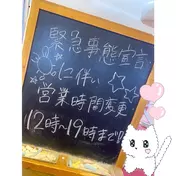 緊急事態宣言
に伴い
営業時間変更
12時〜19時まで